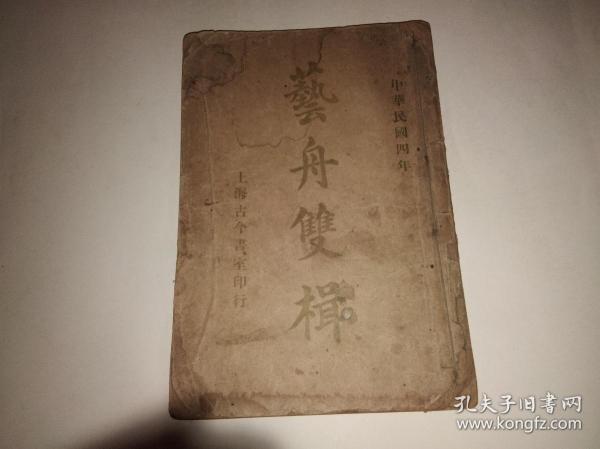 中華民國四年
藝舟雙楫
上海古今書室印行
孔夫子旧書网
www.kongfz.com